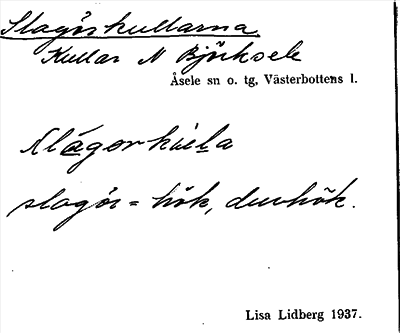 Slagörkullarna
Kullar N Björksele
Åsele sn o. tg, Västerbottens l.
slagör = hök, duvhök.
Lisa Lidberg 1937.